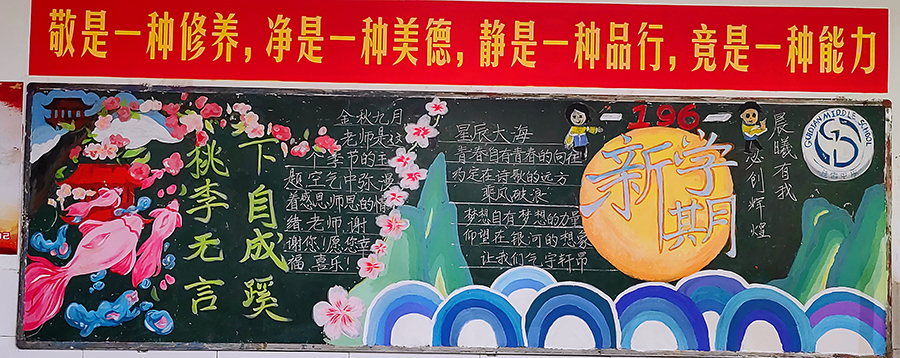 敬是一种修养，净是一种美德，静是一种品行，竞是一种能力
桃李无言
下自成蹊
金秋九月
老师是这
个季节的主
题空气中弥漫
着感恩师恩的情
绪.老师.谢
谢您!愿您幸
福.喜乐!
星辰大海
青春自有青春的向往
约定在诗歌的远方
乘风破浪
梦想自有梦想的力量
仰望在银河的想象
让我们气宇轩昂
196
新学
期
晨曦有我
创辉煌
MIDDLE SCHOOL